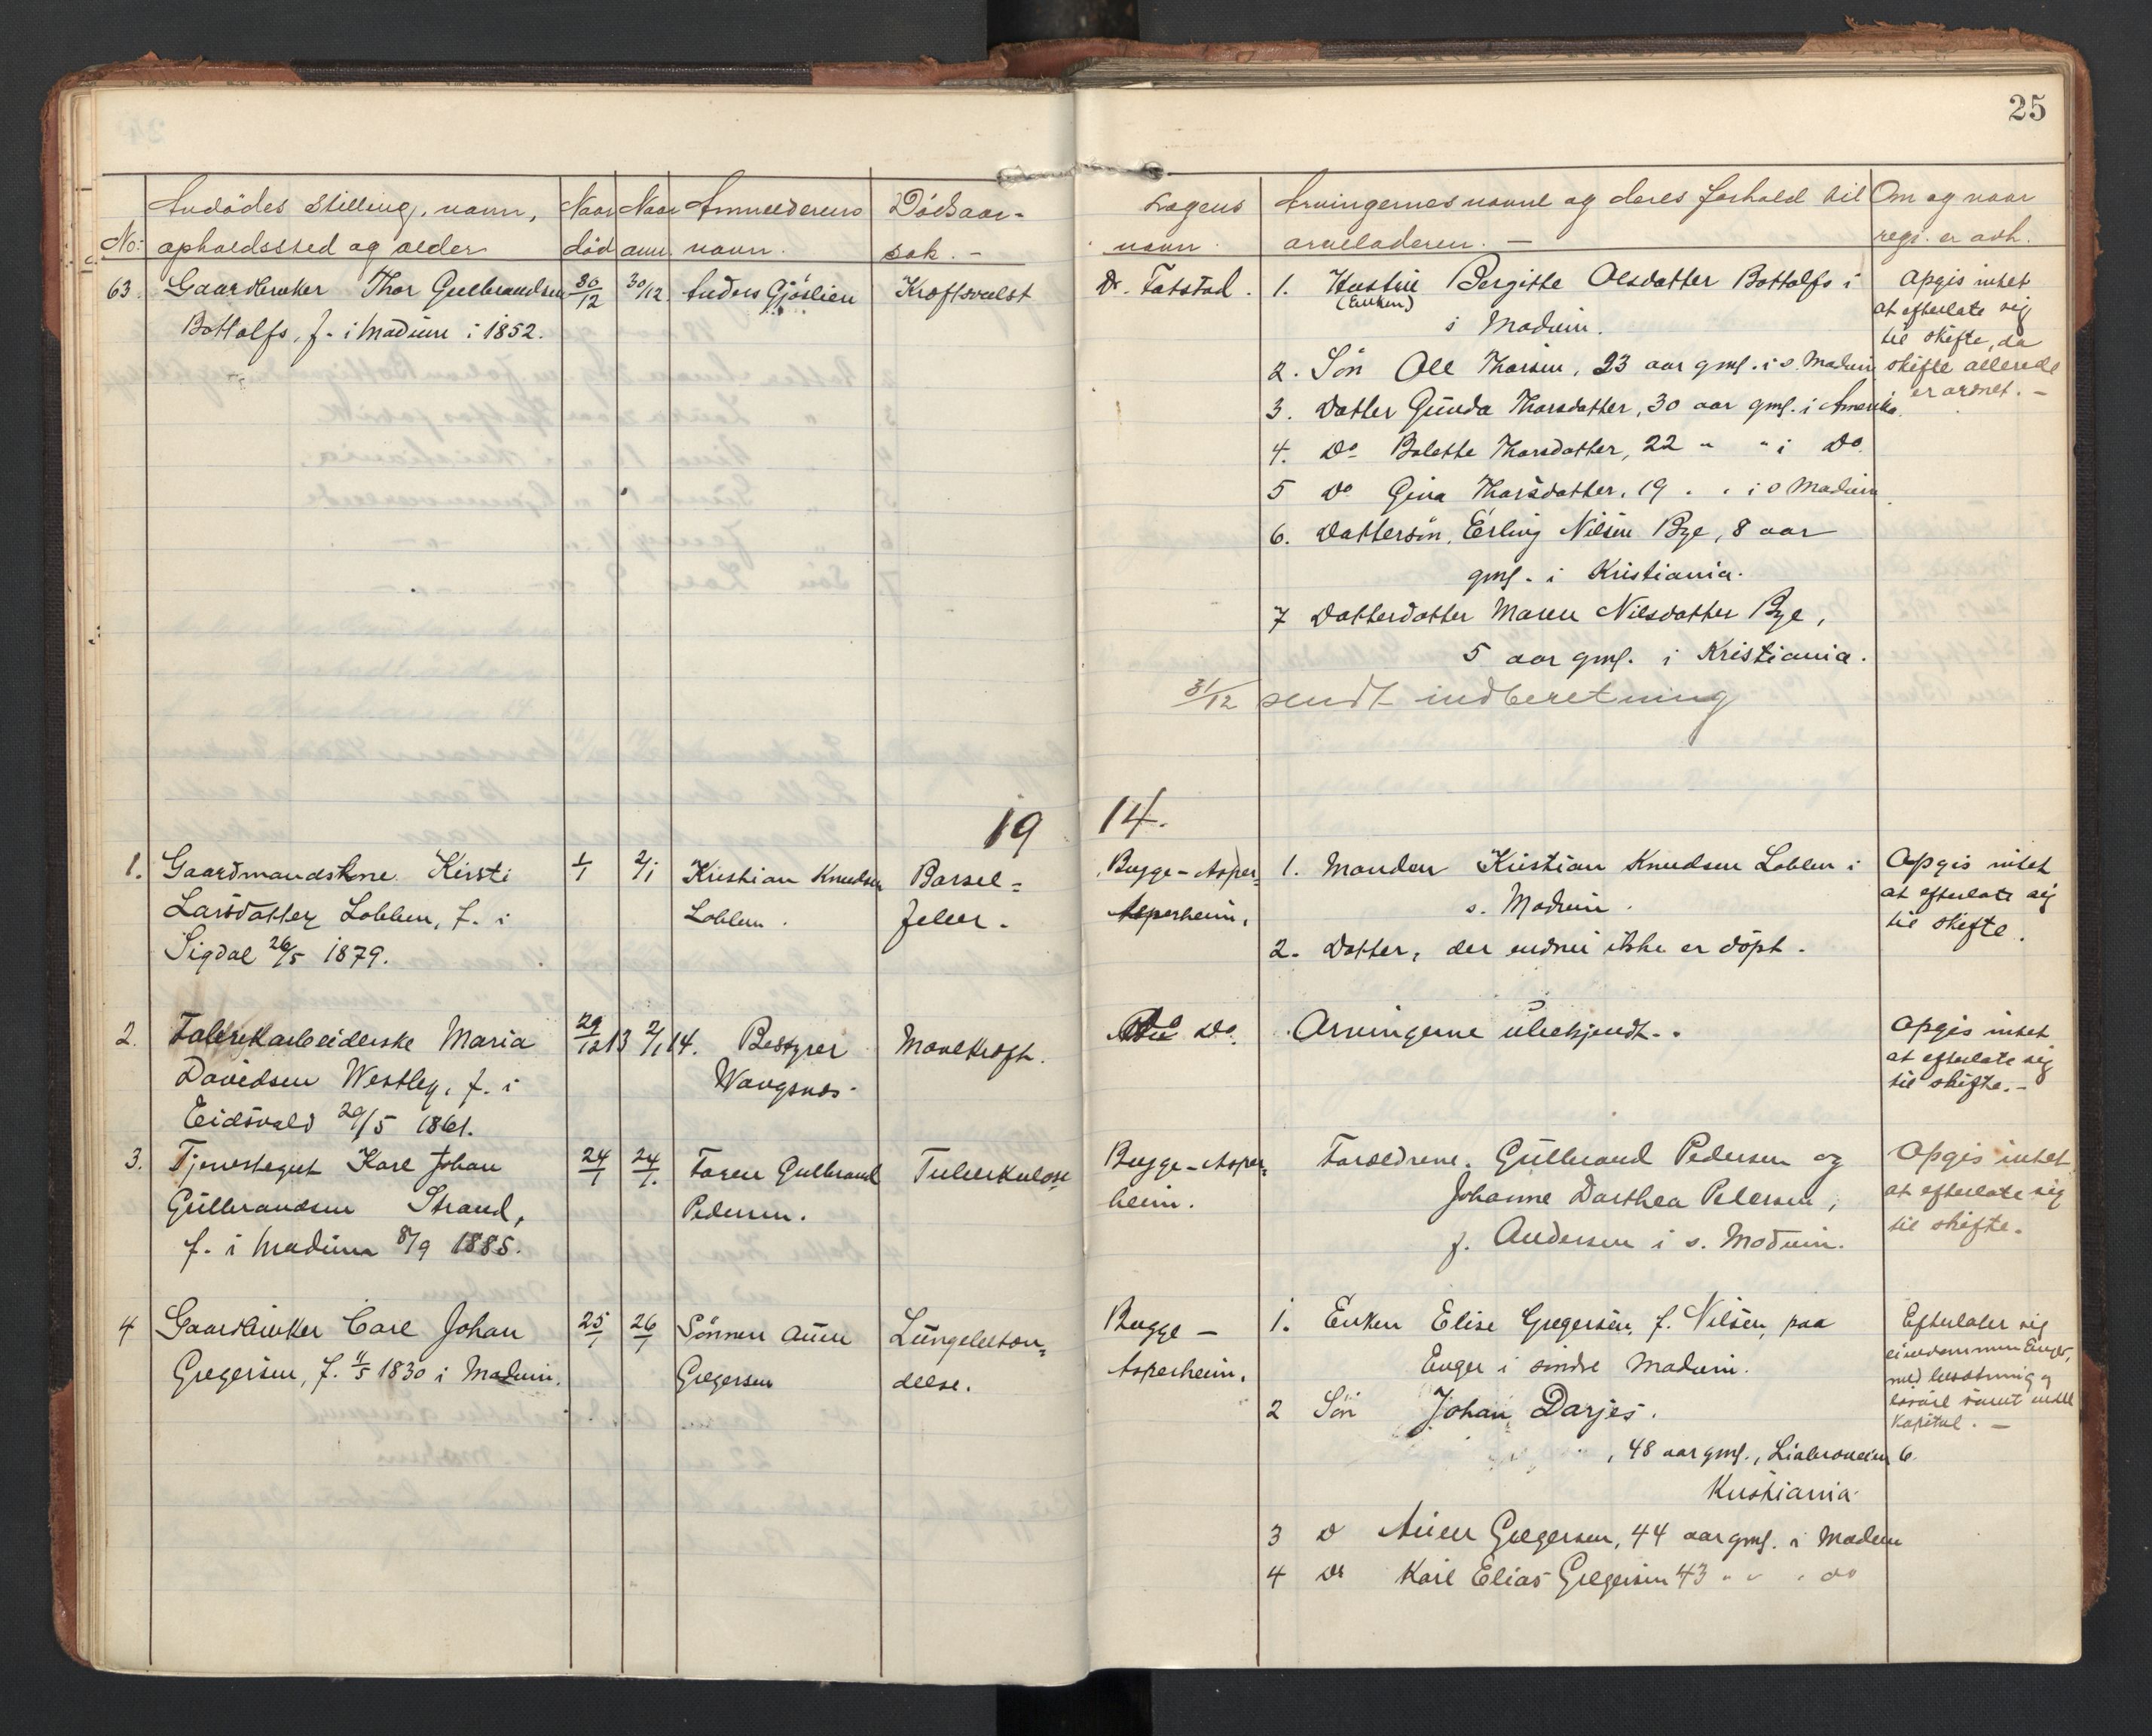 25
No:
Avdödes stilling, navn,
opholdssted og alder
Naar
död
Naar
anm.
Anmelderens
navn.
Dödsaar-
sak. -
Lægens
navn
Arvingernes navne og deres forhold til
arveladeren. -
Om og naar
regs. er avh.
63. Gaardbruker Thor Gulbrandsen
Bottolfs, f. i Modum i 1852.
30/12
30/12
Anders Gjöslien
Kræftsvulst
Dr. Fatstad.
1. Hustru Bergitte Olsdatter Bottolfs i
(Enken)
s Modum.
2. Sön Ole Thorsen, 23 aar gml. i s. Modum
3. Datter Gunda Thorsdatter, 30 aar gml. i Amerika.
4. Do Bolette Thorsdatter, 22 " " i Do.
5 Do Gina Thorsdatter, 19 . . i s Modum
6. Dattersön, Erling Nilsen Bye, 8 aar
gml. i Kristiania.
7 Datterdatter Maren Nilsdatter Bye,
5 aar gml. i Kristiania.
31/12 sendt indberetning
Opgis intet
at efterlate sig
til skifte, da
skifte allerede
er ordnet. -
19 14.
1. Gaardmandskone Kirsti
Larsdatter Loblen, f. i
Sigdal 26/5 1879.
1/1
2/1
Kristian Knudsen
Loblen.
Barsel=
feber.
Bugge-Asper=
Asperheim.
1. Manden Kristian Knudsen Loblen i
s. Modum.
2. Datter, der endnu ikke er döpt.
Opgis intet
at efterlate sig
til skifte.
2. Fabrikarbeiderske Maria
Davidsen Westley, f. i
Eidsvold 29/5 1861.
29/12 13
2/1 14.
Bestyrer
Wangsnes.
Mavekræft.
Do.
Arvingerne ubekjendt.
Opgis intet
at efterlate sig
til skifte. -
3. Tjenestegut Karl Johan
Gulbrandsen Strand,
f. i Modum 8/9 1885.
24/1
24/1.
Faren Gulbrand
Pedersen.
Tuberkulose
Bugge-Asper=
heim.
Forældrene. Gulbrand Pedersen og
Johanne Dorthea Pedersen,
f. Andersen i s. Modum.
Opgis intet
at efterlate sig
til skifte.
4 Gaardbruker Carl Johan
Gregersen, f. 11/5 1830 i Modum.
25/1
26/1
Sönnen Auen
Gregersen
Lungebeton=
delse.
Bugge -
Asperheim.
1. Enken Elise Gregersen, f. Nilsen, paa
Enger i söndre Modum.
2 Sön Johan Darjes.
, 48 aar gml., Liabroveien 6
Kristiania.
3 D Auen Gregersen, 44 aar gml. i Modum
4 Do Karl Elias Gregersen 43 " " " do
Efterlater sig
eiendommen Enger,
med besætning og
lösöre samt endel
kapital. -